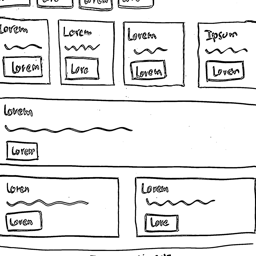 Lorem Lorem Lorem Ipsum
Lorem Lore Lorem Lorem
Lorem
Lorem
Lorem Lorem
Lorem Lore